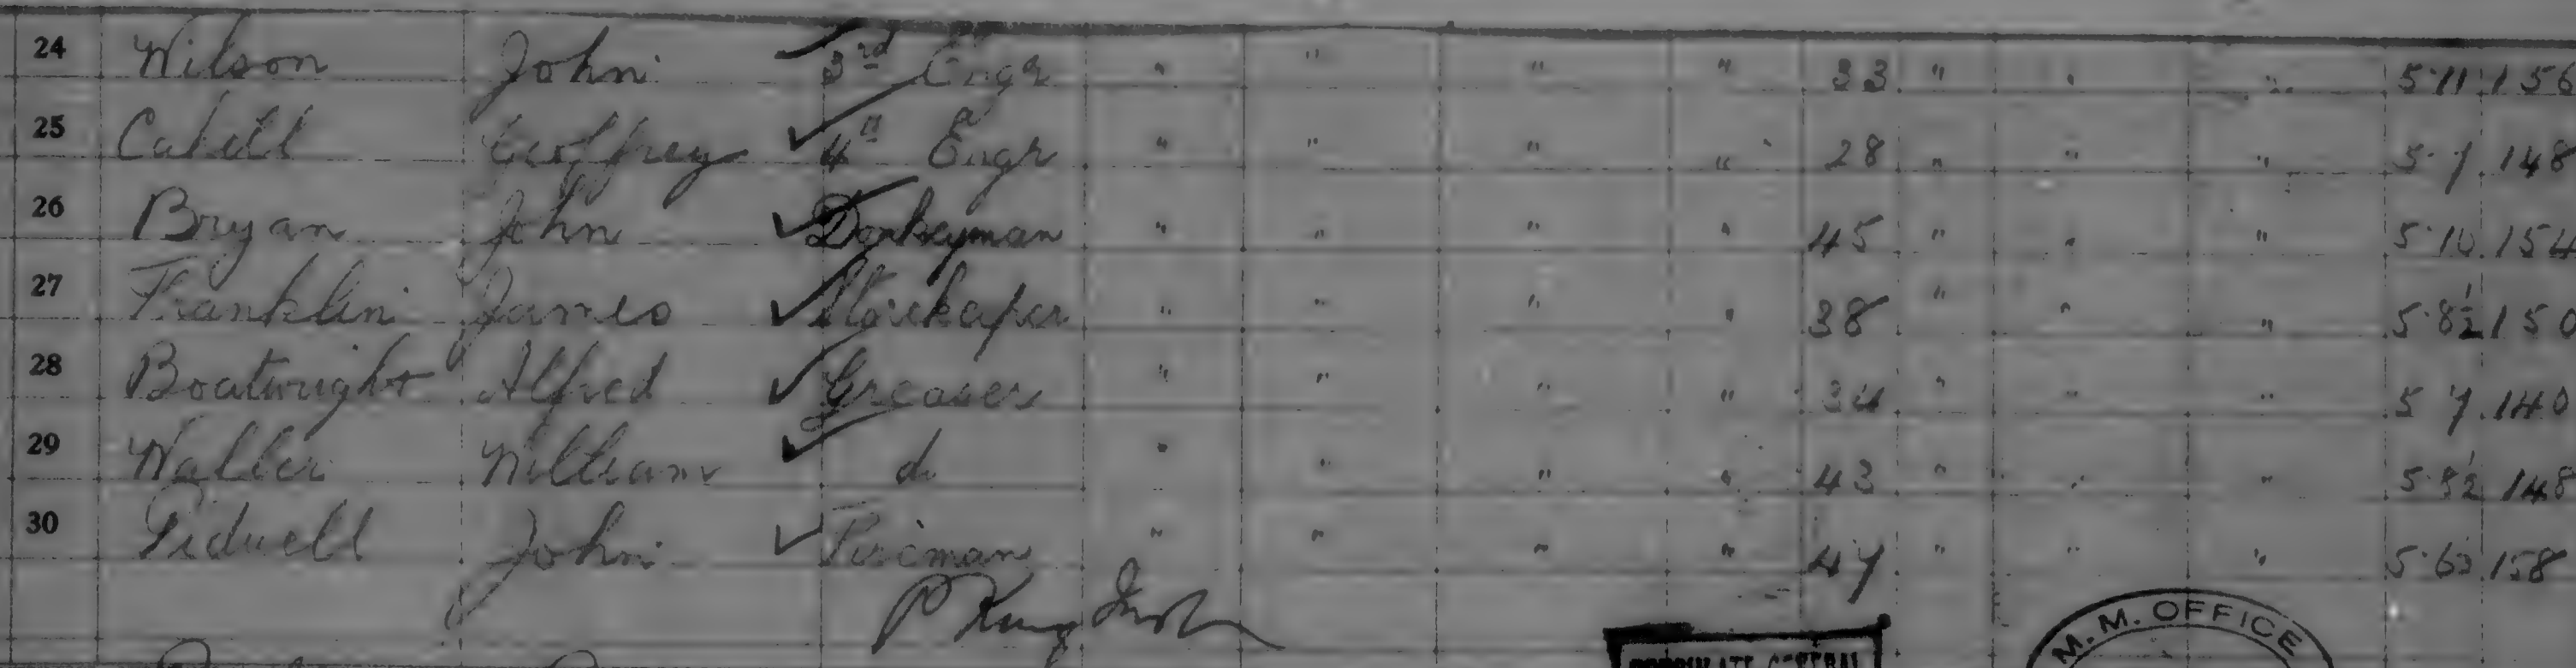 24 Wilson John 3rd Engr " " " " 33 " " " 5 11 156
25 Cahill Geoffrey 4th Engr " " " " 28 " " " 5 7 148
26 Bryan John Donkeyman " " " " 45 " " " 5 10 154
27 Franklin James Storekeeper " " " " 38 " " " 5 8½ 150
28 Boatwright Alfred Greaser " " " " 34 " " " 5 7 140
29 Waller William do " " " " 43 " " " 5 8½ 148
30 Pidwell John Fireman " " " " 47 " " " 5 158
P King
M.M. OFFICE
CONSULATE GENERAL